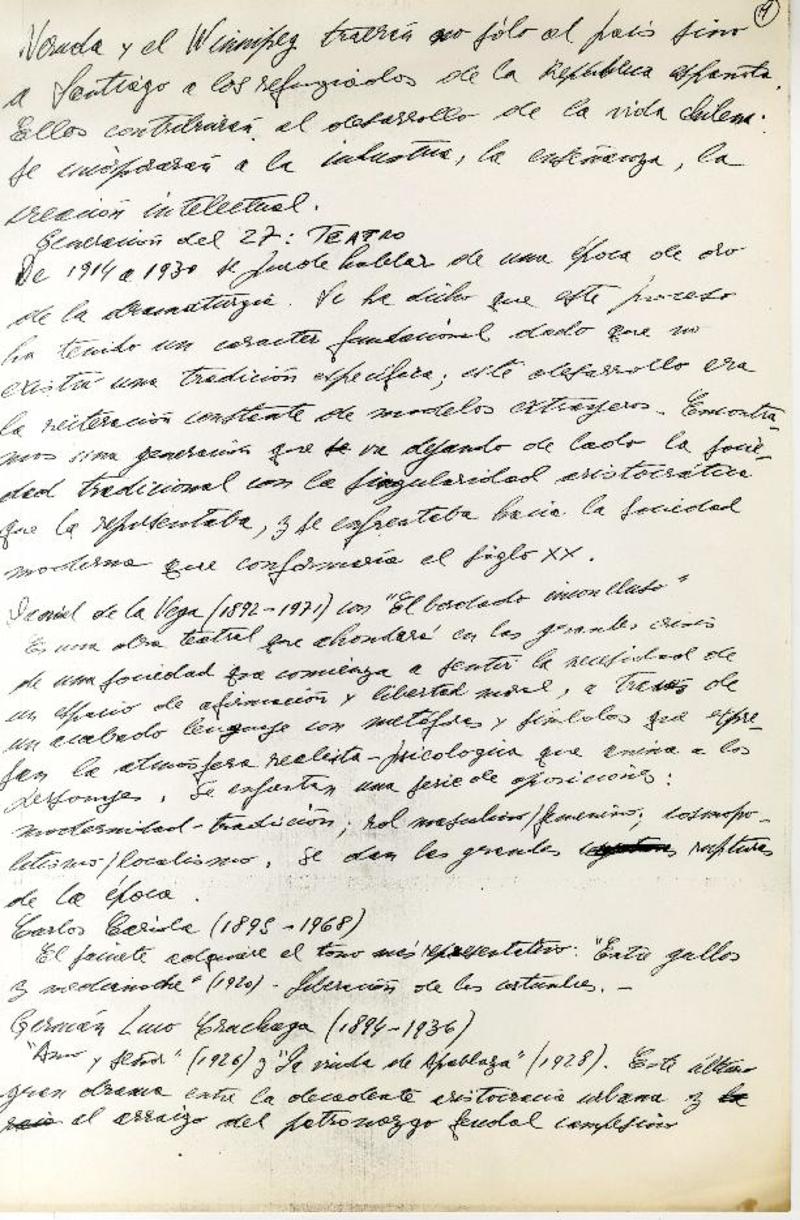 9
Neruda y el Winnipeg traerán no sólo al país sino
a Santiago a los refugiados de la República española.
Ellos contribuirán al desarrollo de la vida chilena.
Se incorporarán a la industria, la enseñanza, la
creación intelectual.
Generación del 27: TEATRO
De 1914 a 1930 se puede hablar de una época de oro
de la dramaturgia. Se ha dicho que este proceso
ha tenido un carácter fundacional dado que no
existía una tradición específica; este desarrollo era
la reiteración constante de modelos extranjeros. Encontra-
mos una generación que se va dejando de lado la socie-
dad tradicional con la singularidad aristocrática
que la representaba, y se enfrentaba hacia la sociedad
moderna que conformaría el siglo XX.
Daniel de la Vega (1892-1971) con "El bordado inconcluso"
Es una obra teatral que ahondará en las grandes crisis
de una sociedad que comienza a sentir la necesidad de
un espacio de afirmación y libertad moral, a través de
un acabado lenguaje con metáforas y símbolos que expre-
san la atmósfera realista-psicológica que anima a los
personajes. Se enfrentan una serie de oposiciones:
modernidad-tradición; rol masculino/femenino; cosmopo-
litismo/localismo. Se dan las grandes rupturas
de la época.
Carlos Cariola (1895-1968)
El sainete adquiere el tono más representativo: "Entre gallos
y medianoche" (1920) - liberación de las costumbres. -
Germán Luco Cruchaga (1894-1936)
"Amo y señor" (1926) y "La viuda de Apablaza" (1928). Este último
gran drama entre la decadente aristocracia urbana y la
el arraigo del patronazgo feudal campesino